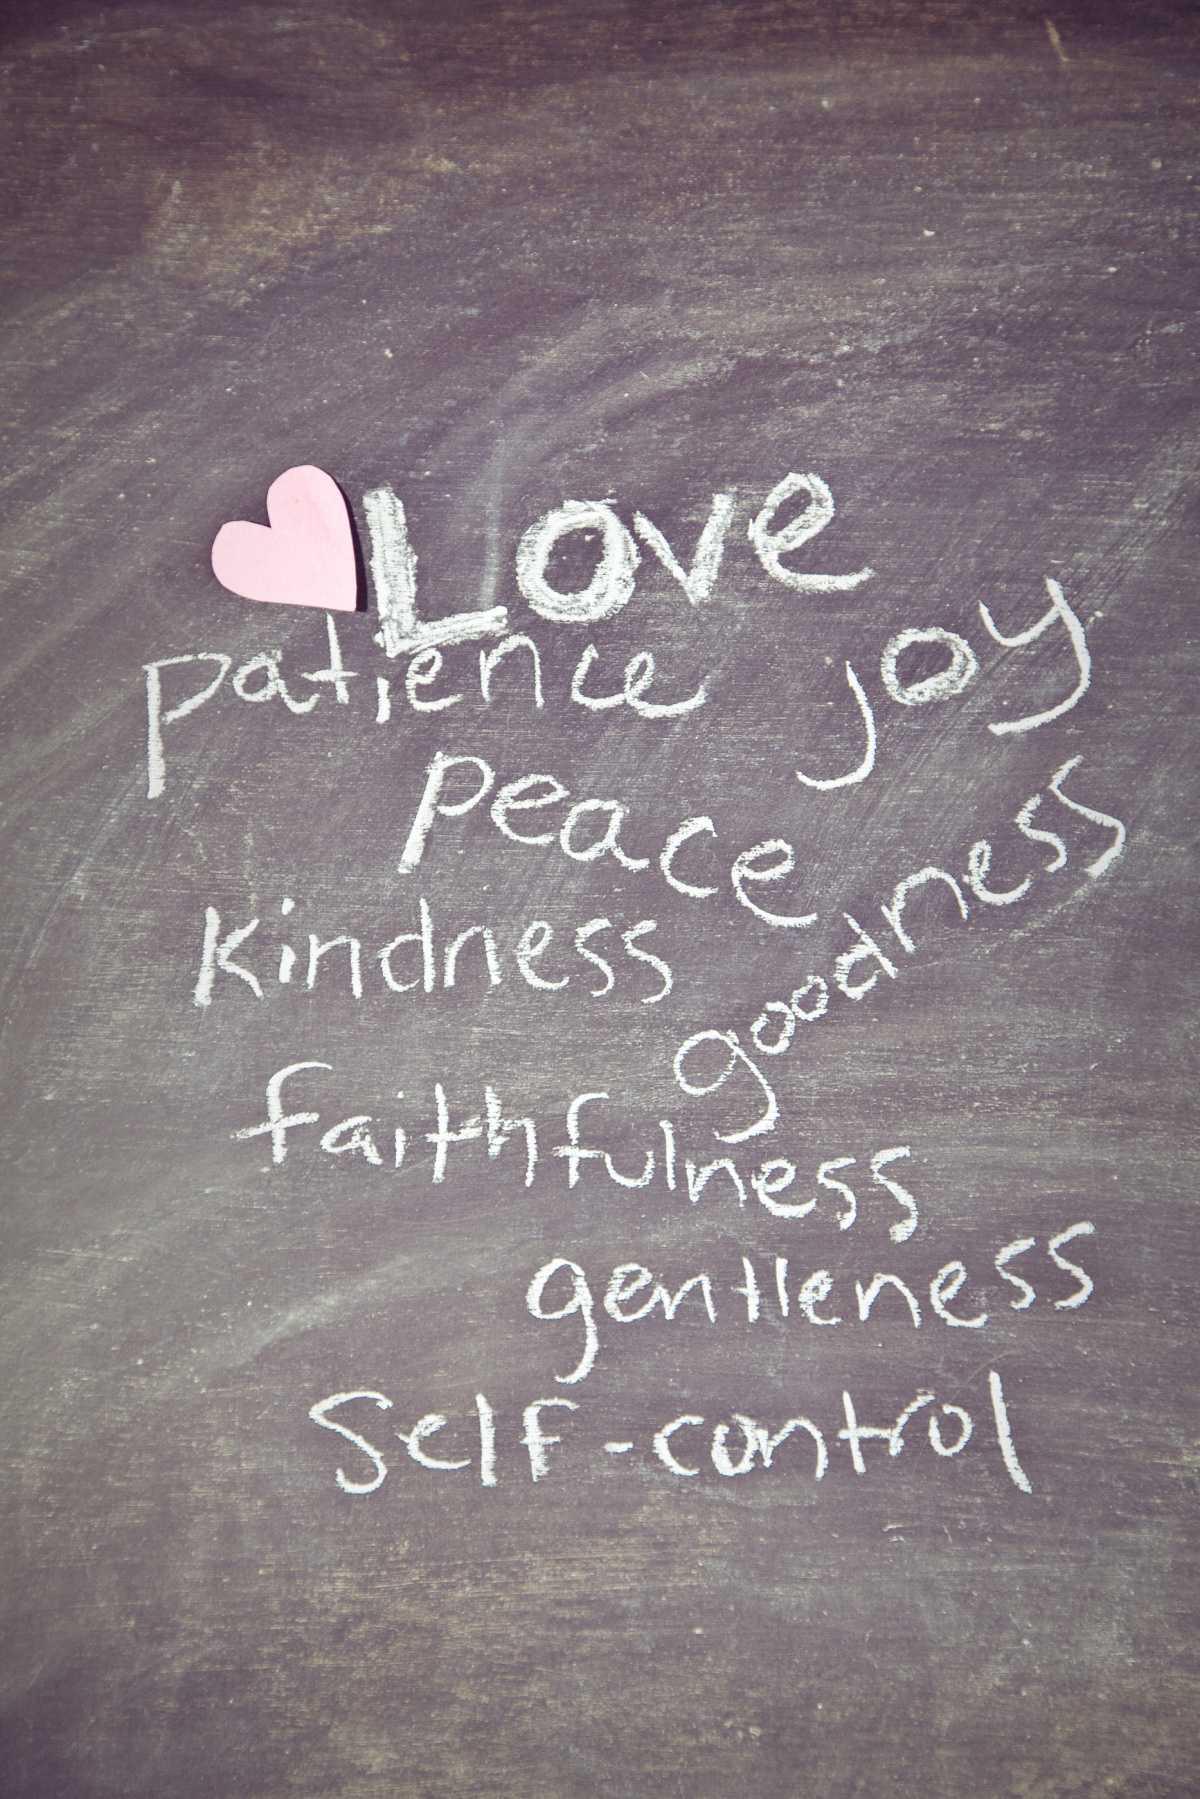 Love
patience joy
peace
kindness
goodness
faithfulness
gentleness
Self-control